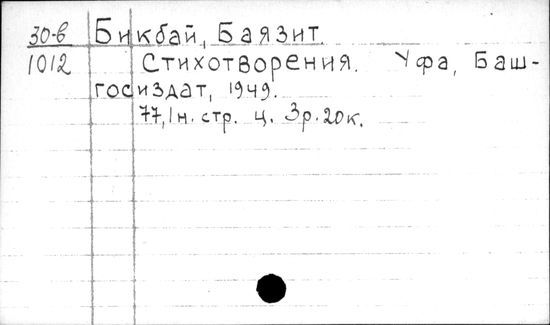 30-в Бикбай, Баязит.
1012 Стихотворения. Уфа, Баш-
госиздат, 1949.
77,1 н. стр. ц. 3р. 20к.